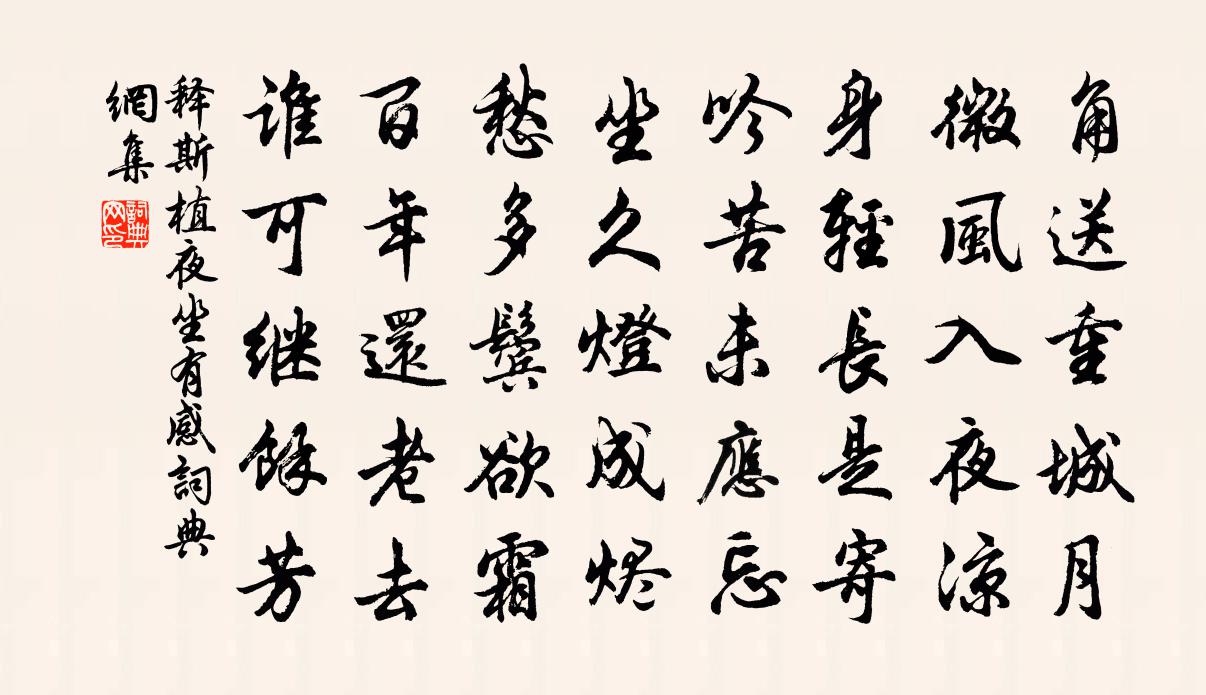 角送重城月
微風入夜凉
身輕長是寄
吟苦未應忘
坐久燈成烬
愁多鬓欲霜
百年還老去
谁可继餘芳
释斯植夜坐有感詞典
網集
詞典
网印